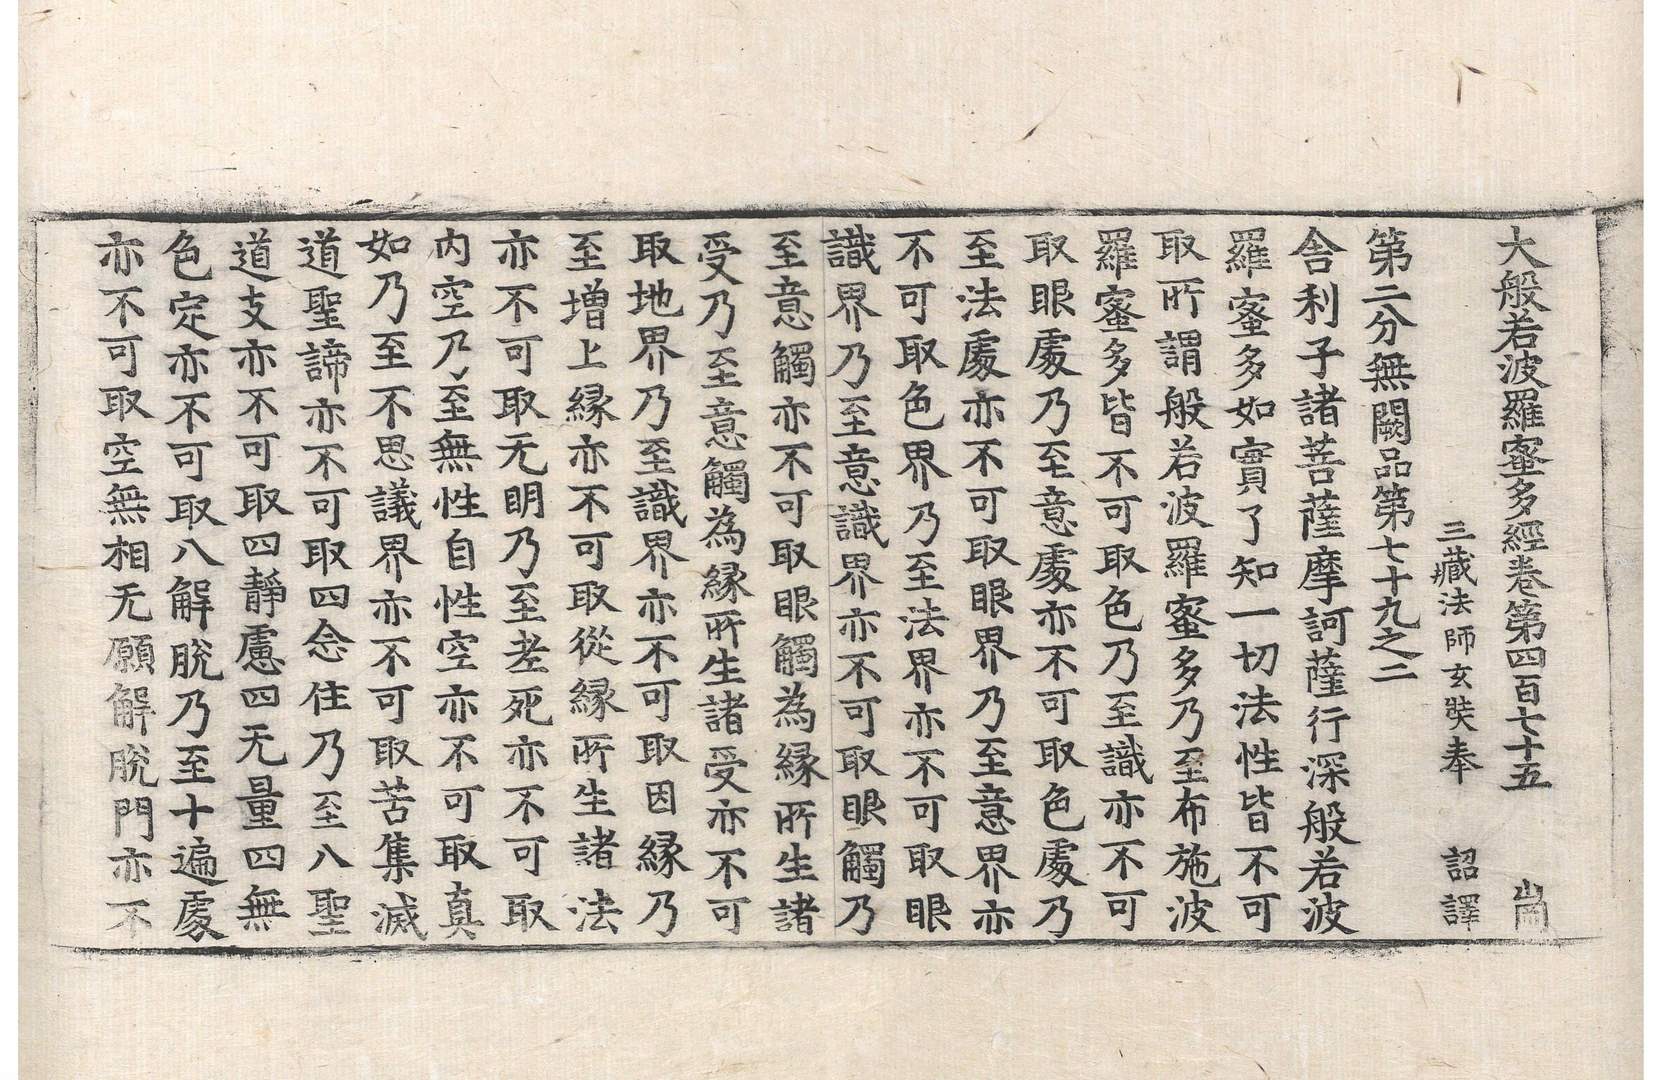 大般若波羅蜜多經卷第四百七十五 崗
三藏法師玄奘奉 詔譯
第二分無闕品第七十九之二
舍利子諸菩薩摩訶薩行深般若波
羅蜜多如實了知一切法性皆不可
取所謂般若波羅蜜多乃至布施波
羅蜜多皆不可取色乃至識亦不可
取眼處乃至意處亦不可取色處乃
至法處亦不可取眼界乃至意界亦
不可取色界乃至法界亦不可取眼
識界乃至意識界亦不可取眼觸乃
至意觸亦不可取眼觸為緣所生諸
受乃至意觸為緣所生諸受亦不可
取地界乃至識界亦不可取因緣乃
至增上緣亦不可取從緣所生諸法
亦不可取无明乃至老死亦不可取
內空乃至無性自性空亦不可取真
如乃至不思議界亦不可取苦集滅
道聖諦亦不可取四念住乃至八聖
道支亦不可取四靜慮四无量四無
色定亦不可取八解脫乃至十遍處
亦不可取空無相无願解脫門亦不